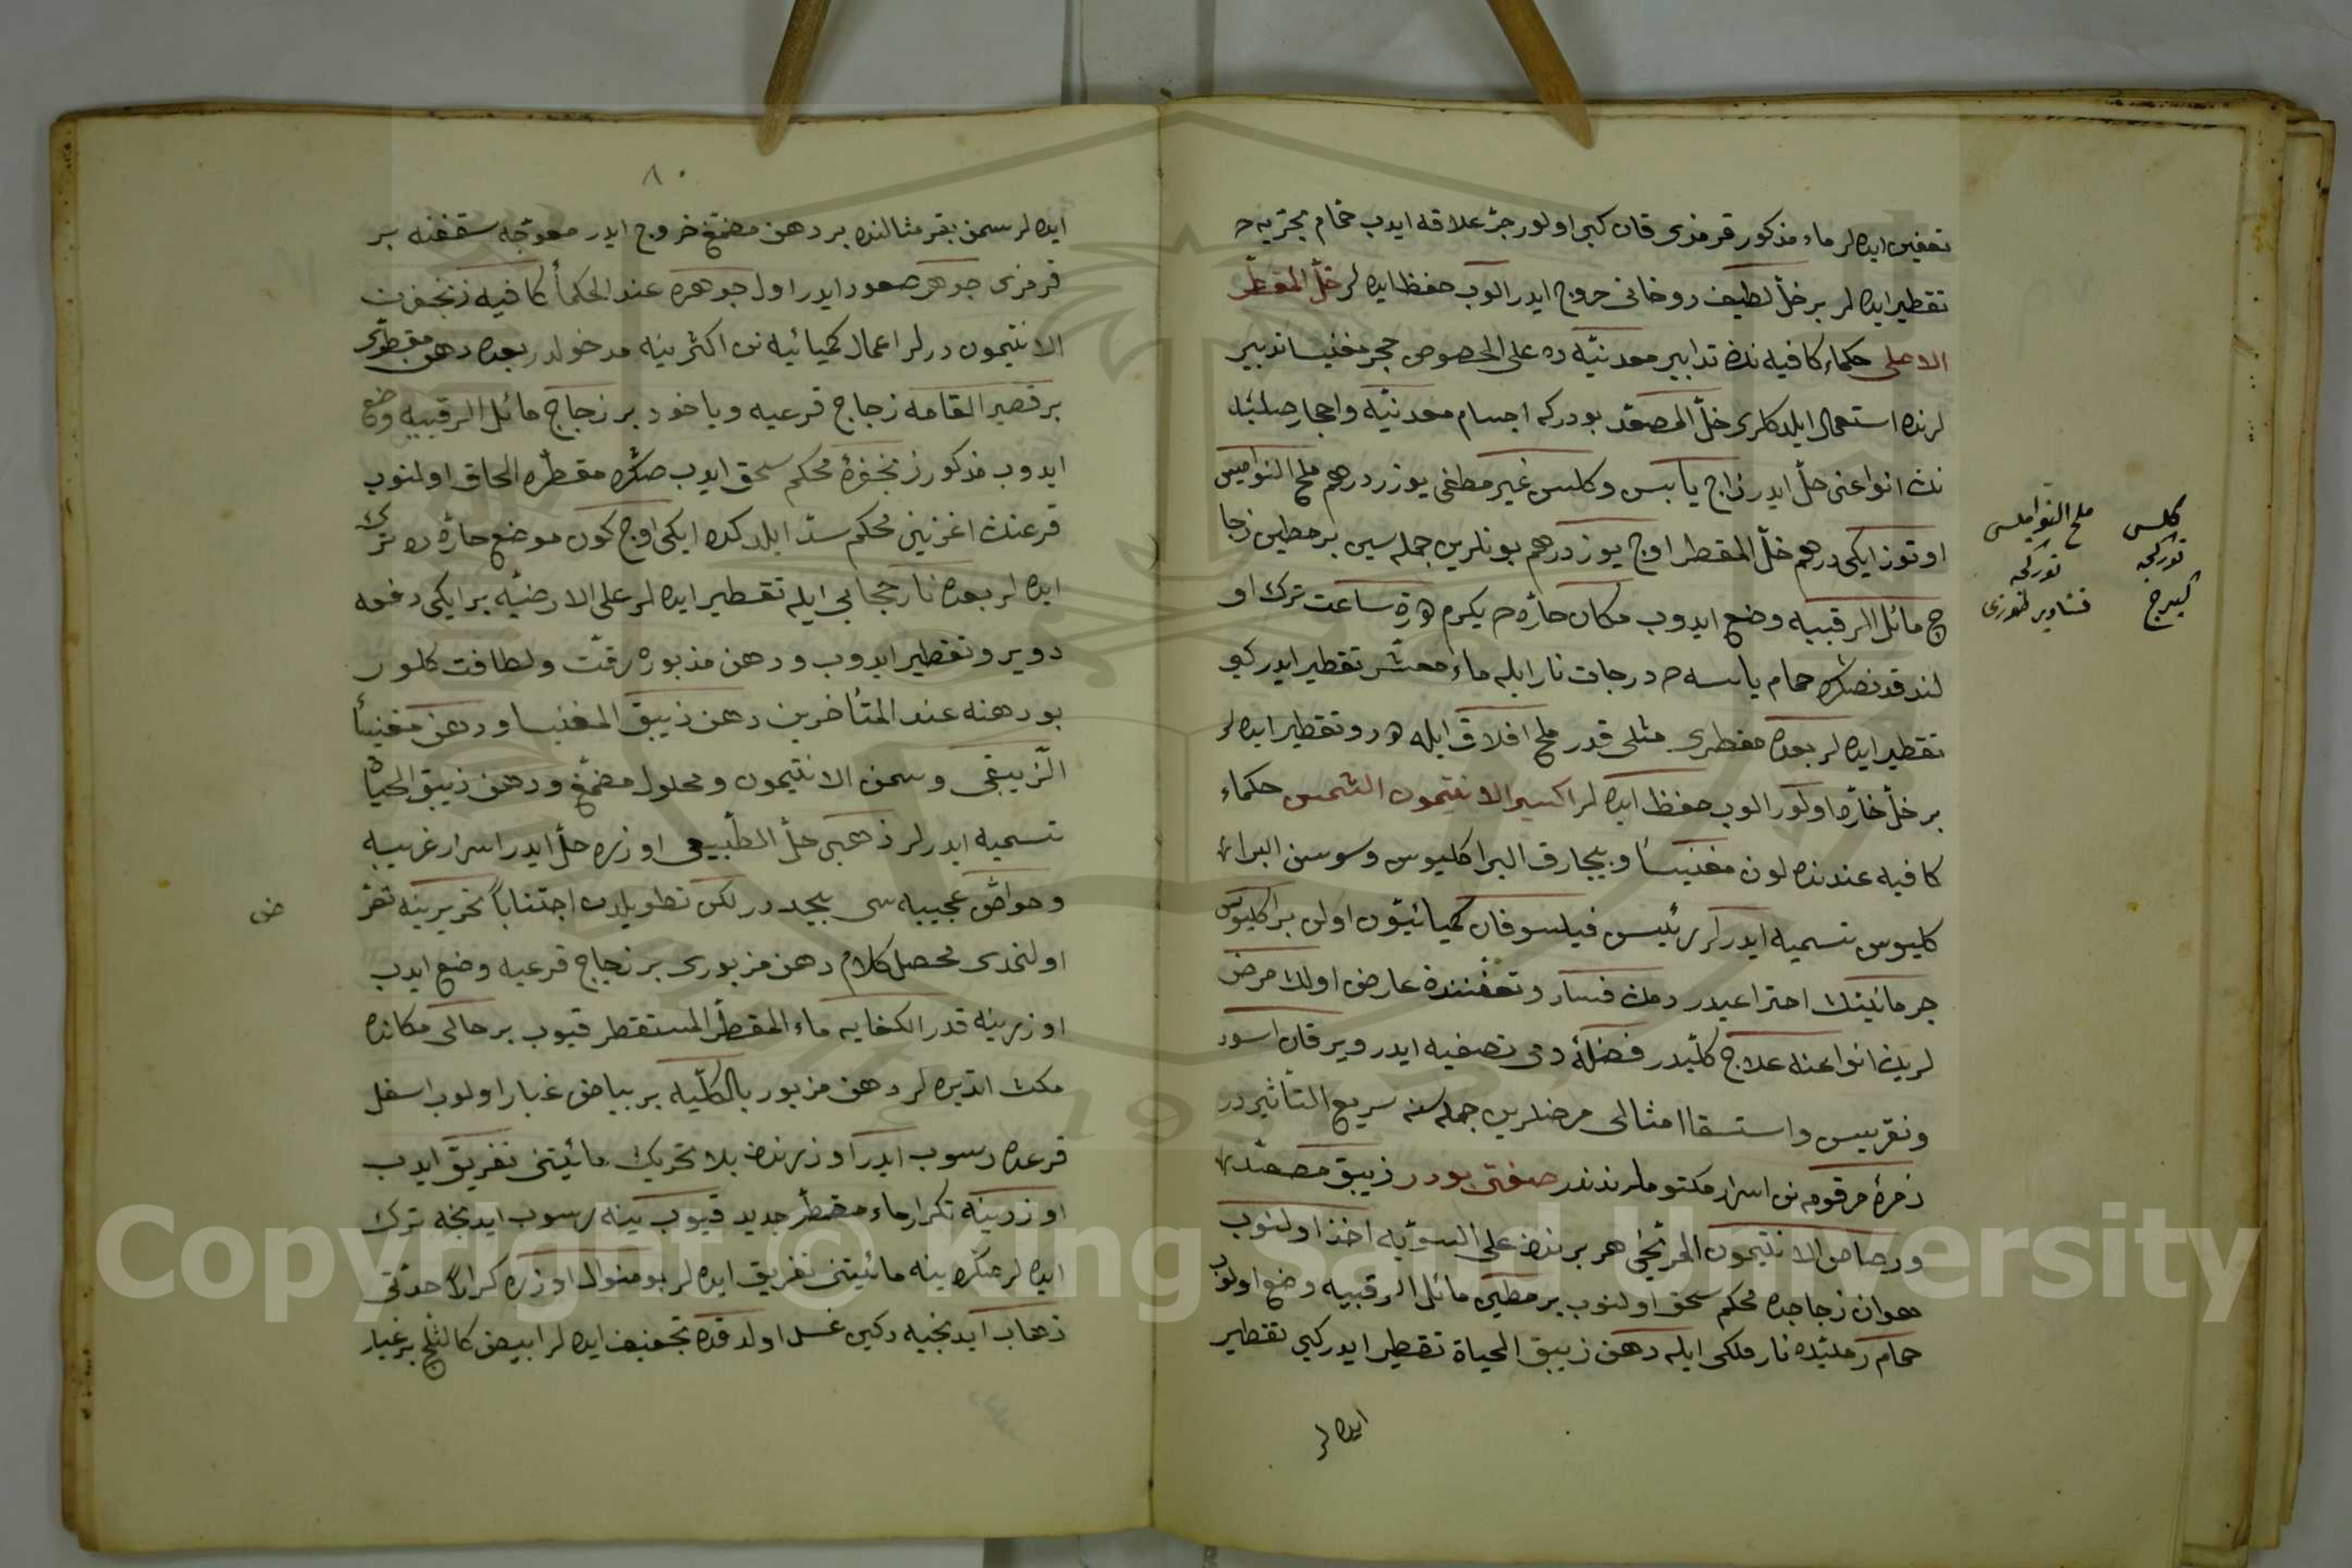 تعفین ایده لر ماء مذکور قرمزی قان کبی اولور جرّ علاقه ایدب حمام بحریه ده
تقطیر ایده لر بر خلّ لطیف روحانی خروج ایدر الوب حفظ ایده لر خلّ المقطّر
الاعلی حکماء کافیه نك تدابیر معدنیّه ده علی الخصوص حجر مغنیسا تدبیر
لرنده استعمال ایلدکلری خلّ المصعّد بودرکه اجسام معدنیّه واحجار صلبّه
نك انواعنی حلّ ایدر زاج یابس وکلس غیر مطفی یوز درهم ملح النوامیس
اوتوز ایکی درهم خلّ المقطر اوج یوز درهم بونلرین جمله سین بر مطین زجا
ج مائل الرقبیه وضع ایدوب مکان حارّه ده یکرم ساعت ترك او
لندقدنصکره حمام یابسه ده درجات نار ایله ماء تقطیر ایدر کبو
تقطیر ایده لر بعده مقطری مثلی قدر ملح افلاق ایله تقطیر ایده لر
بر خلّ حارّه اولور الوب حفظ ایده لر اکسیر الانتیمون الشمس حکماء
کافیه عندنده لون مغنیسا و البراکلیوس وسوسن البرا
کلیوس تسمیه ایدرلر رئیس فیلسوفان کیمیائیّون اولن براکلیوس
جرمانینك احتراعیدر دمك فساد وتعفّننده عارض اولان مرض
لرین انواعنه علاج کلّیدر فضلهٔ دمی تصفیه ایدر ویرقان اسود
ونقریس واستسقا امثالی مرضلرین جمله سنه سریع التأثیردر
زمرهٔ مرقومه نن اسرار مکتوملرندندر صفتی بودر زیبق مصعّد
ورصاص الانتیمون المرّیخی هر برندن علی السویّه اخذ اولنوب
هوان زجاجده محکم سحق اولنوب بر مطین مائل الرقبیه وضع اولنوب
حمام رملیّده نار ملکی ایله دهن زیبق الحیاة تقطیر ایدر کبی تقطیر
ایده لر
ملح النوامیس
تورکجه
نشادیر
کلس
تورکجه
کیرج
٨٠
ایده لر سمن بقر مثالنده بر دهن مصمّغ خروج ایدر معوجّه سقفنه بر
قرمزی جوهر صعود ایدر اول جوهره عند الحکماء کافیه زنجفرت
الانتیمون درلر اعمال کیمیائیه نن اکثرینه مدخولدر بعده دهن مقطری
بر قصیر القامه زجاج قرعیه ویاخود بر زجاج مائل الرقبیه وضع
ایدوب مذکور زنجفرهٔ محکم سحق ایدب صکره مقطره الحاق اولنوب
قرعنك اغزینی محکم سدّ ایلدکده ایکی اوج کون موضع حارّه ده ترك
ایده لر بعده نار حجابی ایله تقطیر ایده لر علی الارضیّه بر ایکی دفعه
دویر وتقطیر ایدوب ودهن مذبوره رقّت ولطافت کلور
بو دهنه عند المتأخرین دهن زیبق المغنیسا ودهن مغنیسا
الزّیبقی وسمن الانتیمون ومحلول مصمّغ ودهن زیبق الحیاة
تسمیه ایدرلر ذهبی حلّ الطّبیعی اوزره حلّ ایدر اسرار غریبه
وخواصّ عجیبه سی بیحد در لکن تطویلدن اجتناباً تحریرینه تعرّ
ض
اولنمدی محصل کلام دهن مزبوری بر زجاج قرعیه وضع ایدب
اوزرینه قدر الکفایه ماء المقطّر المستقطر قیوب بر حالی مکانده
مکث اتدیره لر دهن مزبور بالکلّیه بر بیاض غبار اولوب اسفل
قرعده رسوب ایدر اوزرندن بلا تحریك مائیتنی تفریق ایدب
اوزرینه تکرار ماء مقطّر جدید قیوب ینه رسوب ایدنجه ترك
ایده لر صکره ینه مائیتنی تفریق ایده لر بو منوال اوزره کراراً حدّتی
ذهاب ایدنجیه دکین غسل اولدقده تجفیف ایده لر ابیض کالثّلج بر غبار